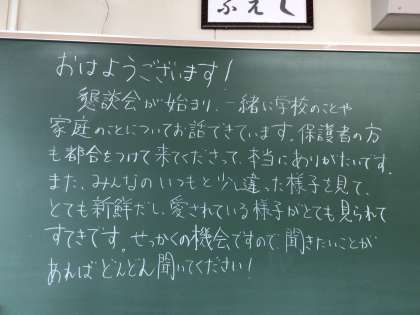 しえふ
おはようございます！
懇談会が始まり、一緒に学校のことや
家庭のことについてお話できています。保護者の方
も都合をつけて来てくださって、本当にありがたいです。
また、みんなのいつもと少し違った様子を見て、
とても新鮮だし、愛されている様子がとても見られて
すてきです。せっかくの機会ですので、聞きたいことが
あればどんどん聞いてください！